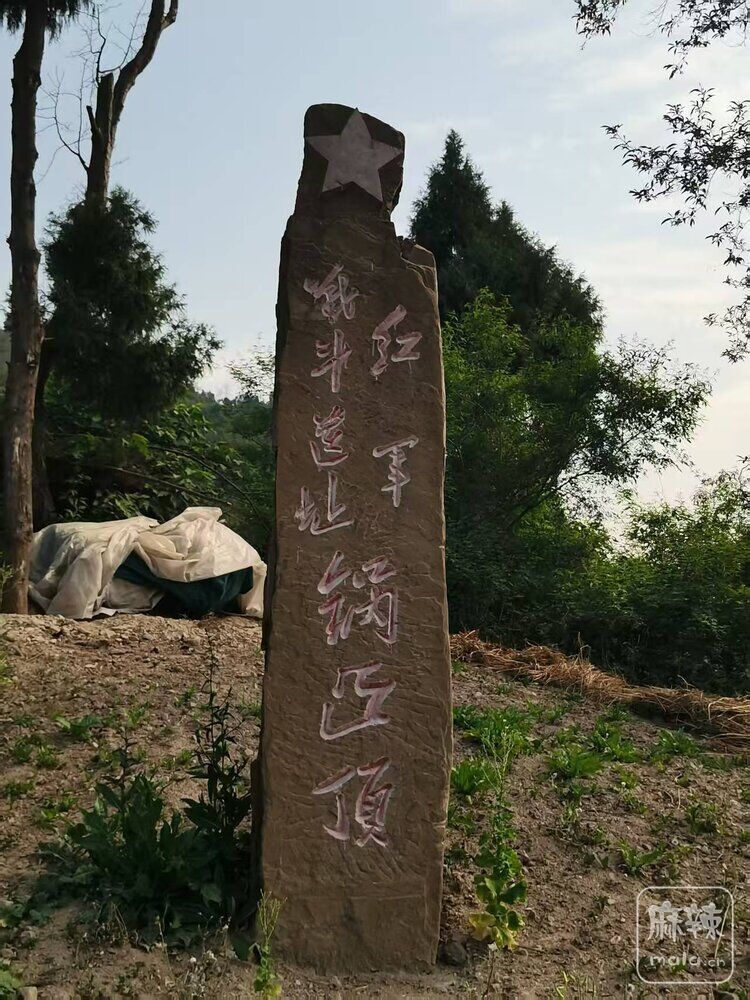 红军
战斗遗址
锅 顶
麻辣
mala.cn